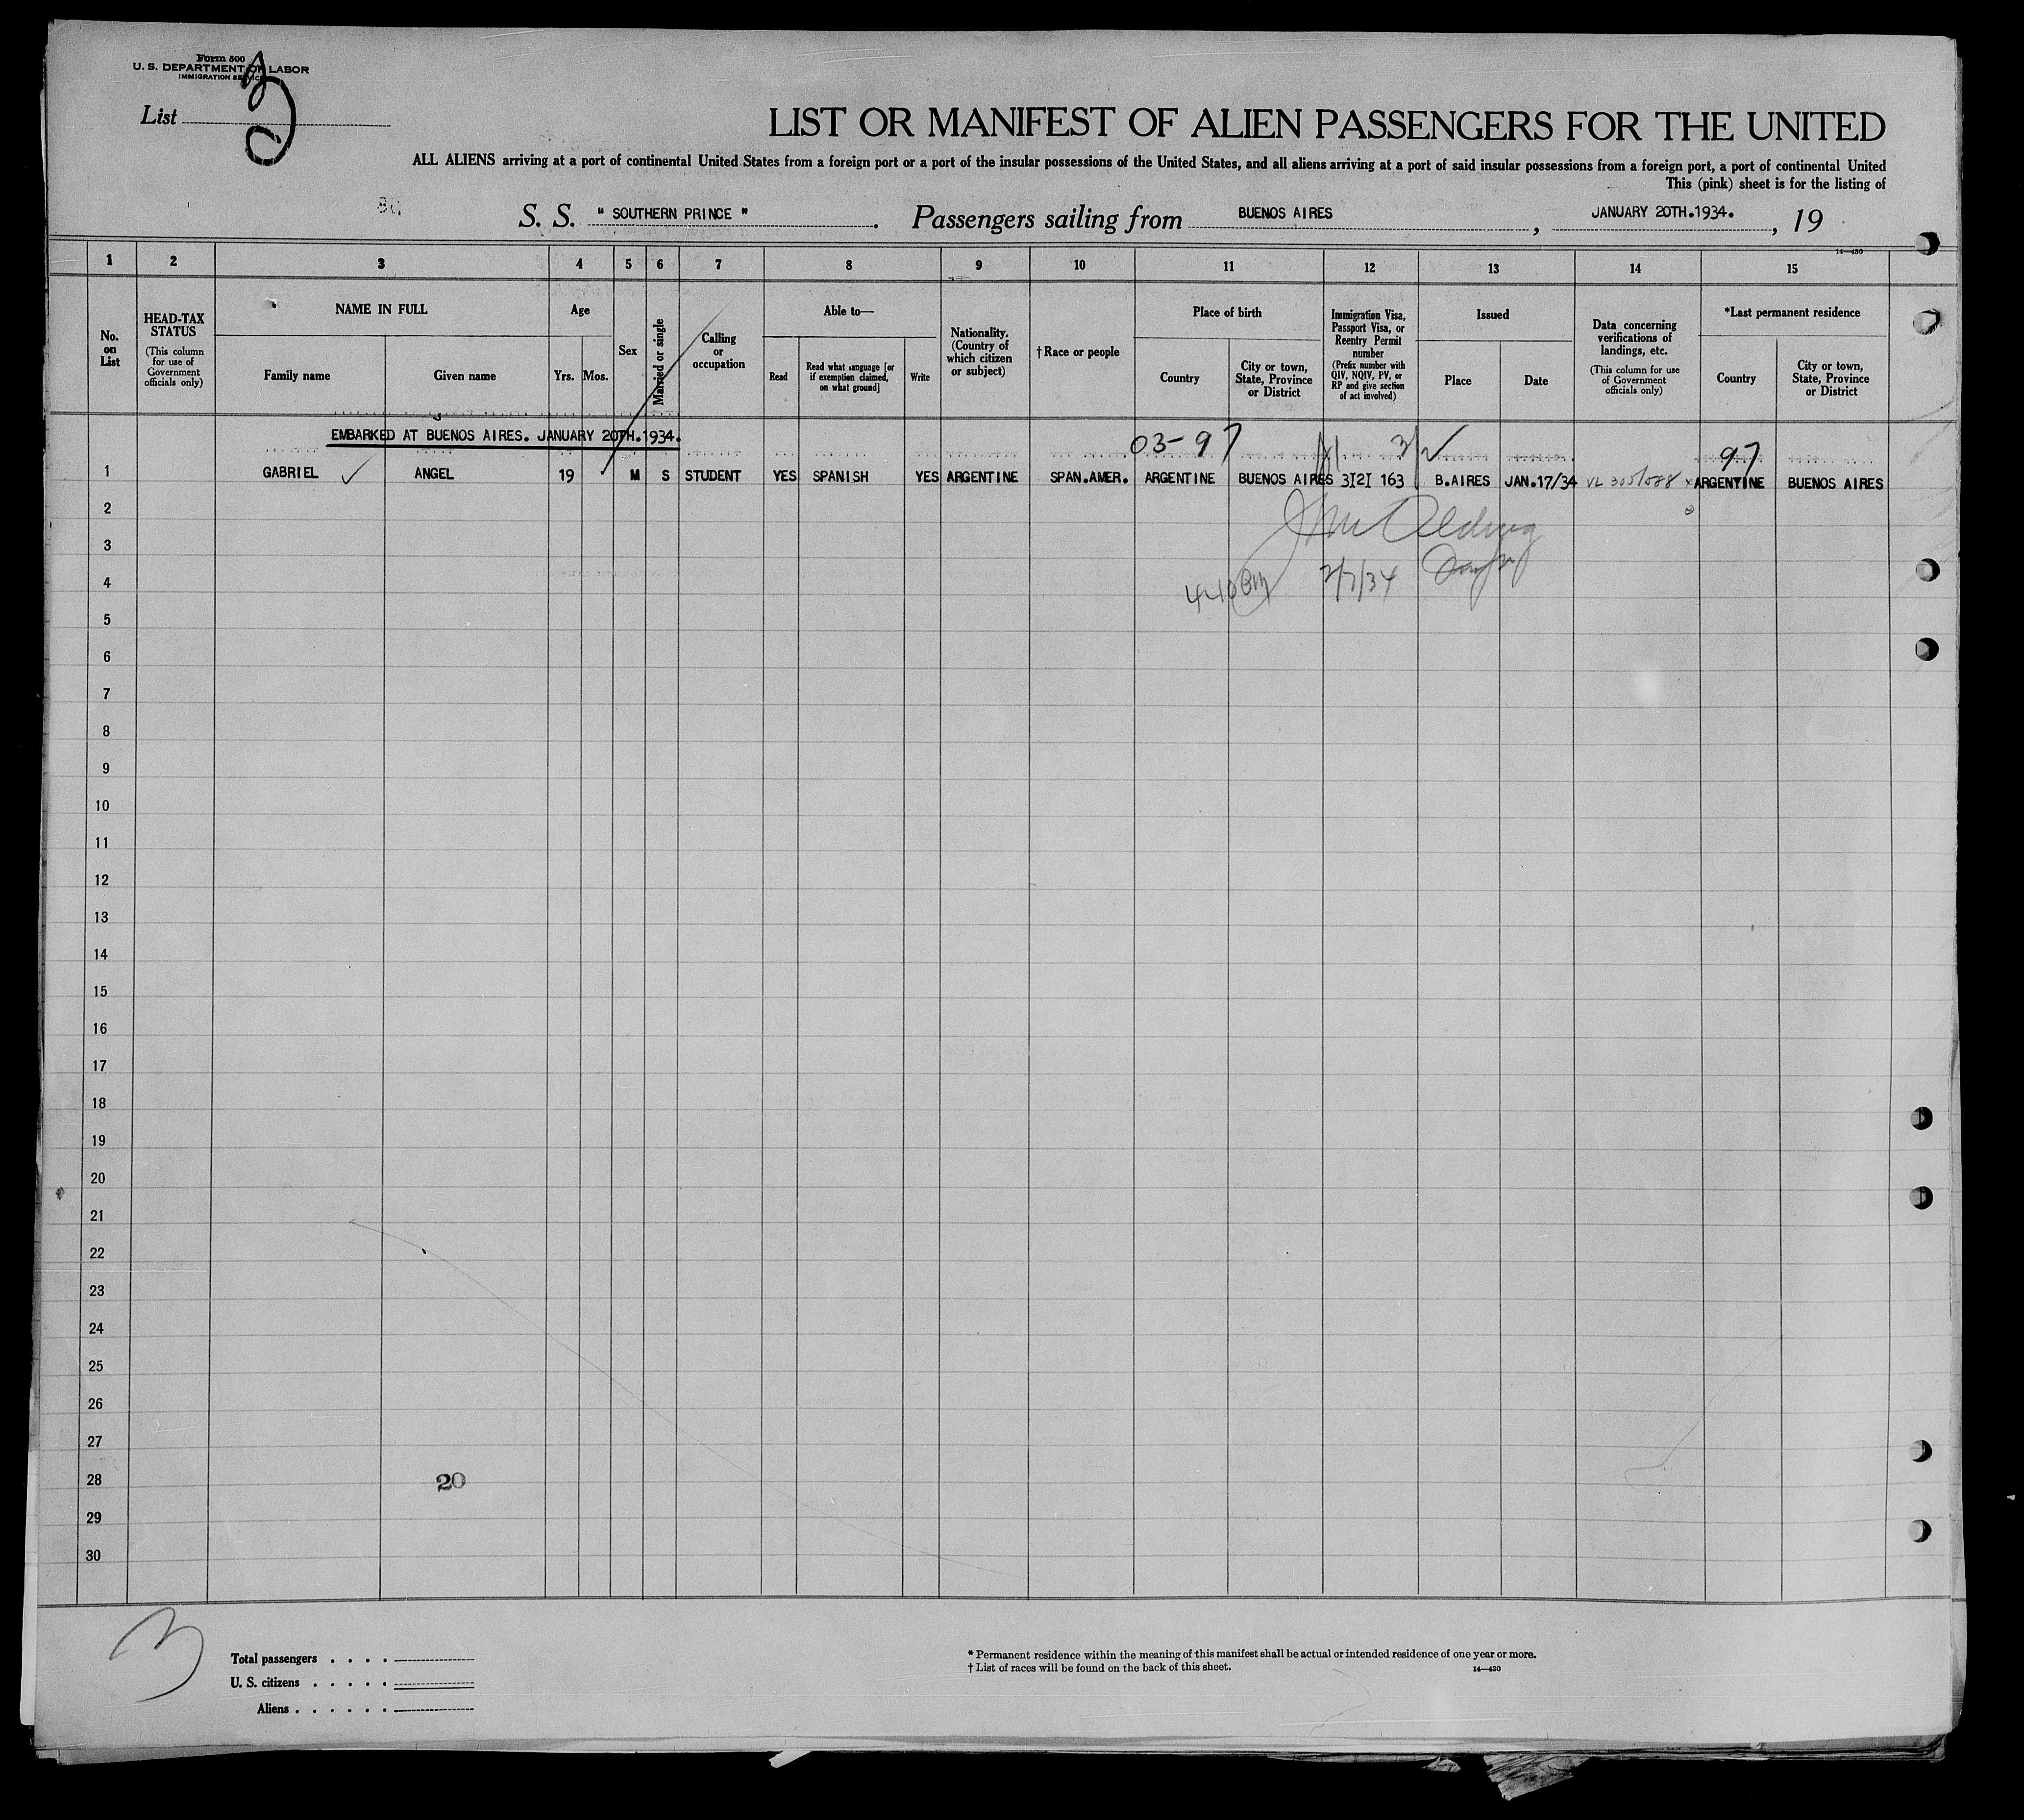 Form 500
U. S. DEPARTMENT OF LABOR
IMMIGRATION SERVICE
List 3
LIST OR MANIFEST OF ALIEN PASSENGERS FOR THE UNITED
ALL ALIENS arriving at a port of continental United States from a foreign port or a port of the insular possessions of the United States, and all aliens arriving at a port of said insular possessions from a foreign port, a port of continental United
This (pink) sheet is for the listing of
S. S. " SOUTHERN PRINCE " . Passengers sailing from BUENOS AIRES , JANUARY 20TH.1934. , 19
14—430
1 2 3 4 5 6 7 8 9 10 11 12 13 14 15
No. on List
HEAD-TAX STATUS
(This column for use of Government officials only)
NAME IN FULL
Family name
Given name
Age
Yrs. Mos.
Sex
Married or single
Calling or occupation
Able to—
Read
Read what language [or if exemption claimed, on what ground]
Write
Nationality. (Country of which citizen or subject)
† Race or people
Place of birth
Country
City or town, State, Province or District
Immigration Visa, Passport Visa, or Reentry Permit number
(Prefix number with QIV, NQIV, PV, or RP and give section of act involved)
Issued
Place
Date
Data concerning verifications of landings, etc.
(This column for use of Government officials only)
*Last permanent residence
Country
City or town, State, Province or District
EMBARKED AT BUENOS AIRES. JANUARY 20TH.1934.
03-97 97
1 GABRIEL ANGEL 19 M S STUDENT YES SPANISH YES ARGENTINE SPAN.AMER. ARGENTINE BUENOS AIRES 3I2I 163 B.AIRES JAN.17/34 ARGENTINE BUENOS AIRES
2
3
4 2/7/34
5
6
7
8
9
10
11
12
13
14
15
16
17
18
19
20
21
22
23
24
25
26
27
28 20
29
30
3
Total passengers . . . .
U. S. citizens . . . . .
Aliens . . . . . .
* Permanent residence within the meaning of this manifest shall be actual or intended residence of one year or more.
† List of races will be found on the back of this sheet.
14—430